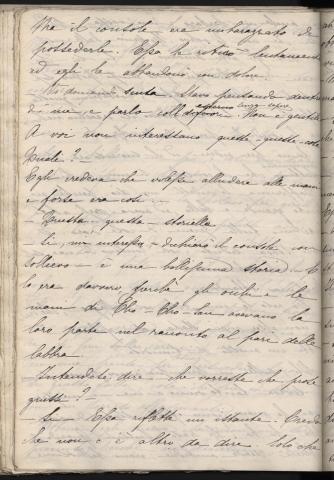 Ma il console era imbarazzato di
possederle. Essa le ritirò lentamente
ed egli le abbandonò con dolore.
domando scusa. Stavo pensando dentro
di me e parlo coll
A voi non interessano queste queste cose
Egli credeva che volesse alludere alle mani
e forse era così.
- Questa - questa storiella
- Sì, mi interessa - dichiarò il console con
sollievo - è una bellissima storia. - E
lo era davvero, perchè gli occhi e le
mani di Cho-Cho-San avevano la
loro parte nel racconto al pari delle
labbra.
- Intendete dire - che vorreste che prose
guissi? -
- Sì. Essa riflettè un istante. Credo
che non c'è altro da dire. Solo che